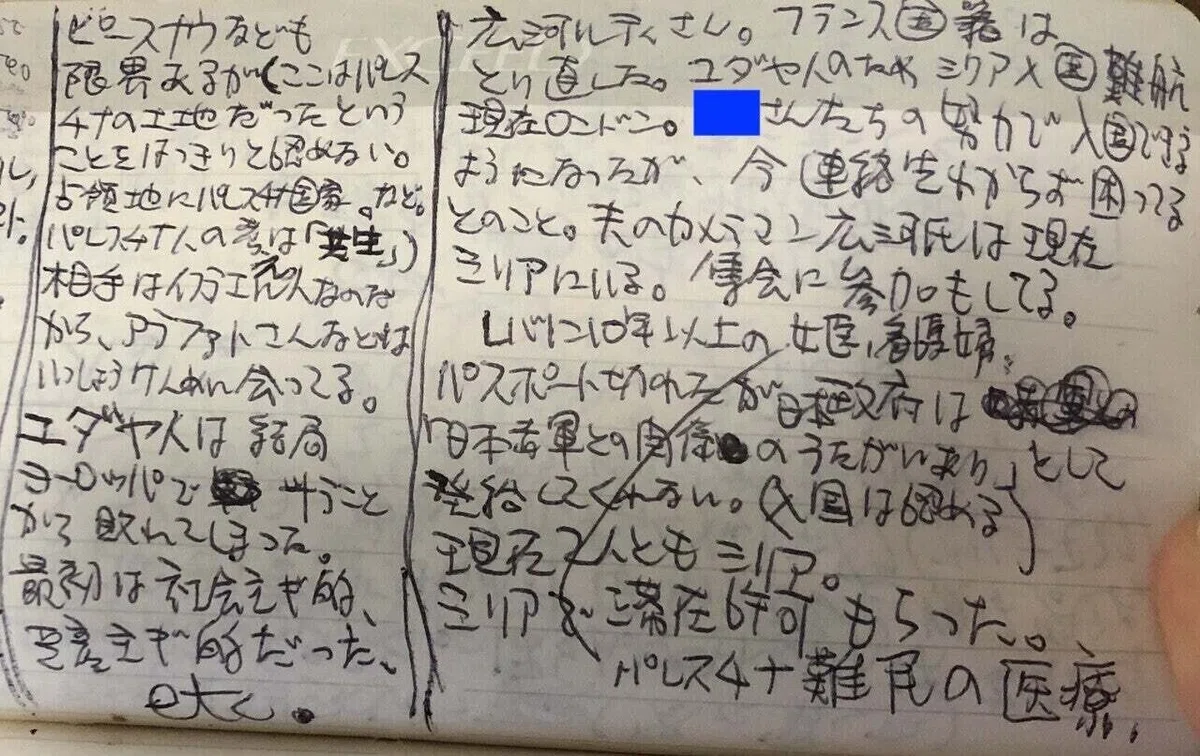 ピースナウなども
限界あるが(ここはパレス
チナの土地だったという
ことをはっきりと認めない。
占領地にパレスチナ国家。など。
パレスチナ人の案は「共生」)
相手はイスラエル人なのだ
から、アラファトさんなどは
いっしょうけんめい会ってる。
ユダヤ人は結局
ヨーロッパで 斗うこと
から敗れてしまった。
最初は社会主ギ的、
共産主ギ的だった、
etc.
広河ルティさん。フランス国籍は
とり直した。ユダヤ人のためシリア入国難航
現在ロンドン。 さんたちの努力で入国できる
ようになったが、今連絡先わからず困ってる
とのこと。夫のカメラマン広河氏は現在
シリアにいる。集会に参加もしてる。
レバノンに10年以上の女医、看護婦。
パスポート切れたが日本政府は
「日本赤軍との関係のうたがいあり」として
発給してくれない。(入国は認める)
現在2人ともシリア。
シリアで滞在許可もらった。
パレスチナ難民の医療、